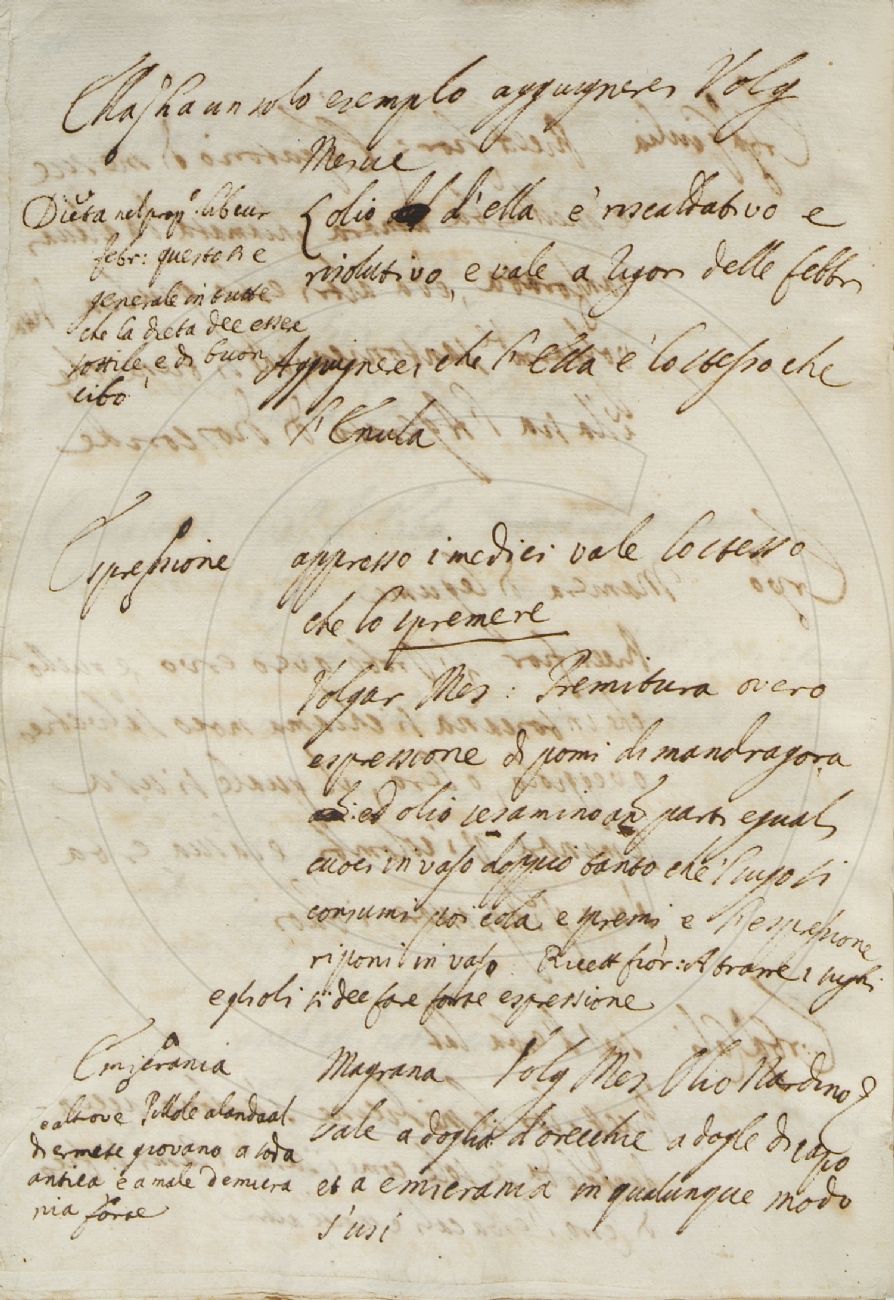 Ella s'ha un solo exemplo aggiugnere Volg
Mesue
L'olio d'ella è riscaldativo e
risolutivo, e vale a rigori delle febbri
Dieta nel prop. lib cur
febr: questo si e
generale in tutte
che la dieta dee essere
sottile e di buon
cibo
Aggiugnere, che l'Ella è lo stesso che
l'Enula
Espressione
appresso i medici vale lo stesso
che lo spremere
Volgar Mes: Premitura overo
espressione di pomi di mandragora
ed olio sesamino an parti eguali
cuoci in vaso doppio tanto che 'l sugo si
consumi poi cola e premi e l'espressione
riponi in vaso Ricett fior: A trarre i sughi
e gli oli si dee fare forte espressione
Emigrania
Magrana Volg Mes Olio Nardino
vale a doglia d'orecchie a dogle di capo
et a emicrania in qualunque modo
s'usi
e altrove Pillole alandaal
di ermete giovano a soda
antica e a male d'emicra
nia forte